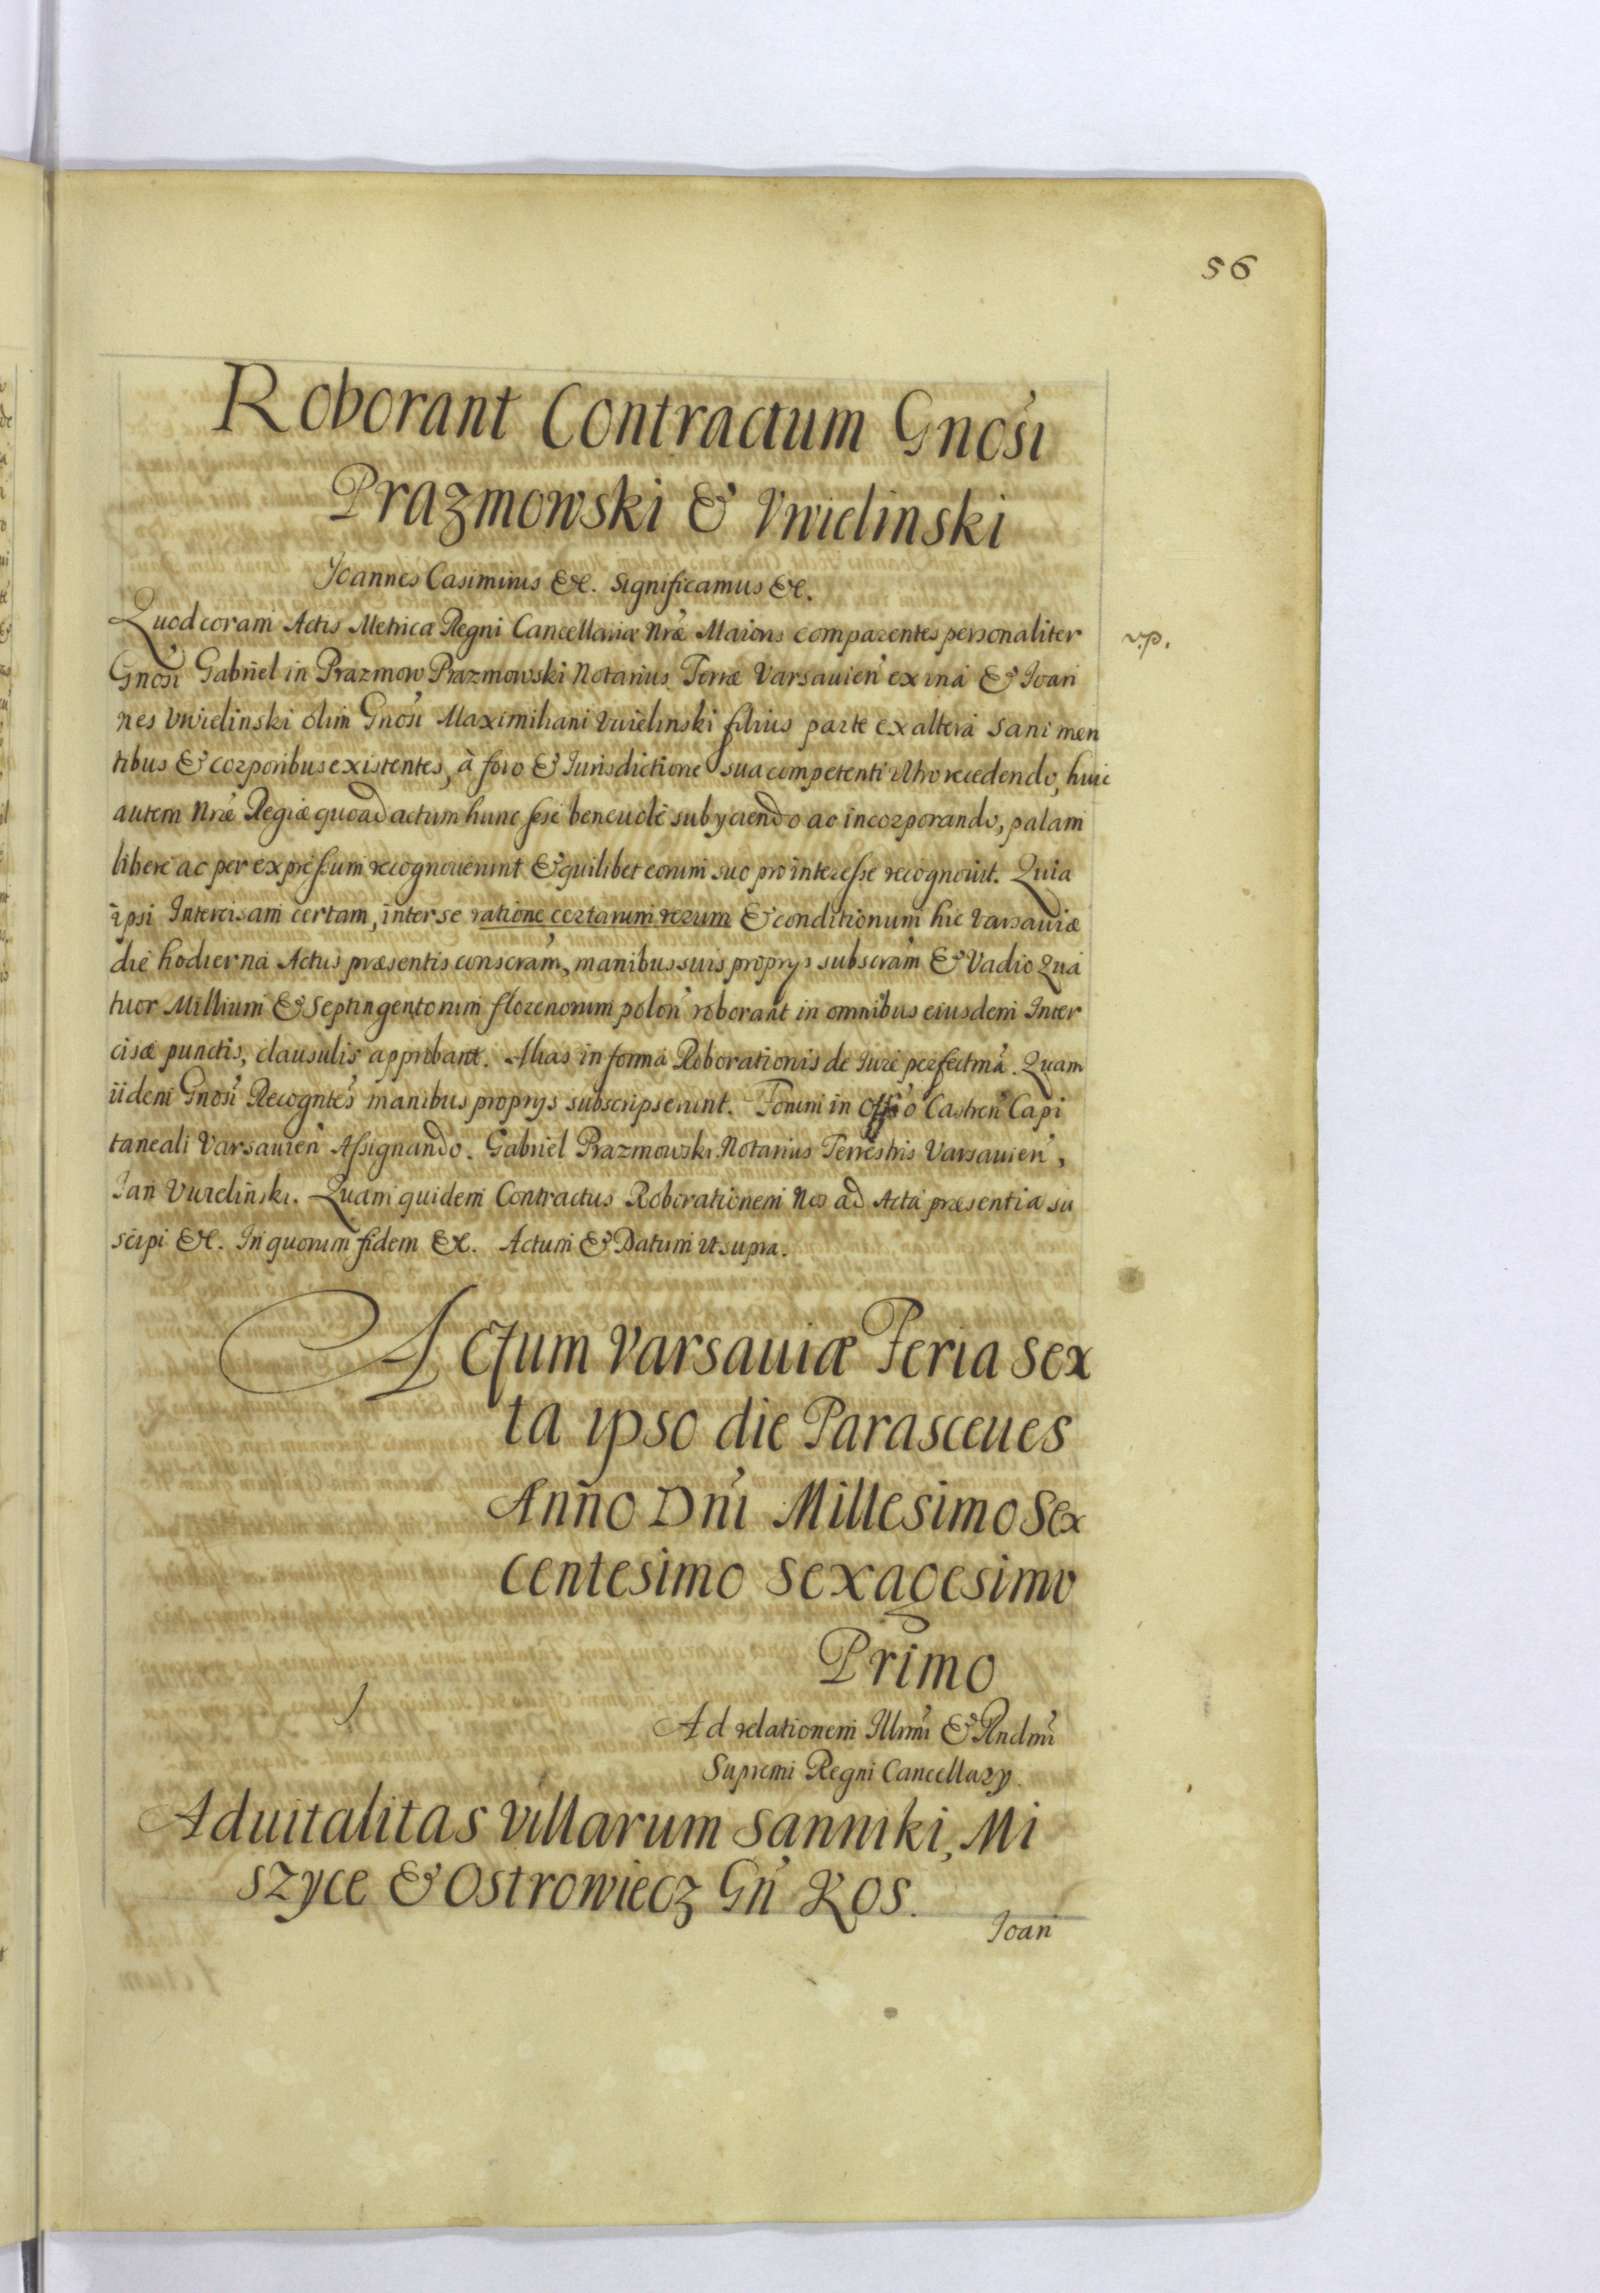 56
Roborant Contractum Gnosi
Prazmowski & Vwielinski
Joannes Casimirus &c. Significamus &c.
Quod coram Actis Metrica Regni Cancellariæ Nræ Maioris comparentes personaliter
v.p.
Gnosi Gabriel in Prazmow Prazmowski Notarius Terræ Varsauien ex una & Ioan
nes Vwielinski olim Gnosi Maximiliani Vwielinski filius parte ex altera sani men
tibus & corporibus existentes, à foro & Iurisdictione sua competenti ultro recedendo, huic
autem Nræ Regiæ quoad actum hunc sese beneuole subyciendo ac incorporando, palam
libere ac per expressum recognouerunt & quilibet eorum suo pro interesse recognouit. Quia
ipsi Intercisam certam, inter se ratione certarum rerum & conditionum hic Varsauiæ
die hodierna Actus præsentis conscram, manibus suis proprys subscram & Vadio Qua
tuor Millium & Septingentorum florenorum polon roborant in omnibus eiusdem Inter
cisæ punctis, clausulis approbant. Alias in forma Roborationis de Iure perfectma. Quam
iidem Gnosi Recogntes manibus proprys subscripserunt. Forum in Offo Castren Capi
taneali Varsauien Assignando. Gabriel Prazmowski Notarius Terrestris Varsauien,
Ian Vwielinski. Quam quidem Contractus Roborationem Nos ad Acta præsentia su
scipi &c. In quorum fidem &c. Actum & Datum ut supra.
Actum Varsauiæ Feria Sex
ta ipso die Parasceues
Anno Dni Millesimo Sex
centesimo sexagesimo
Primo
Ad relationem Illmi & Rndmi
Supremi Regni Cancellary.
Aduitalitas Villarum Sanniki, Mi
szyce & Ostrowiecz Gn Kos.
Joan